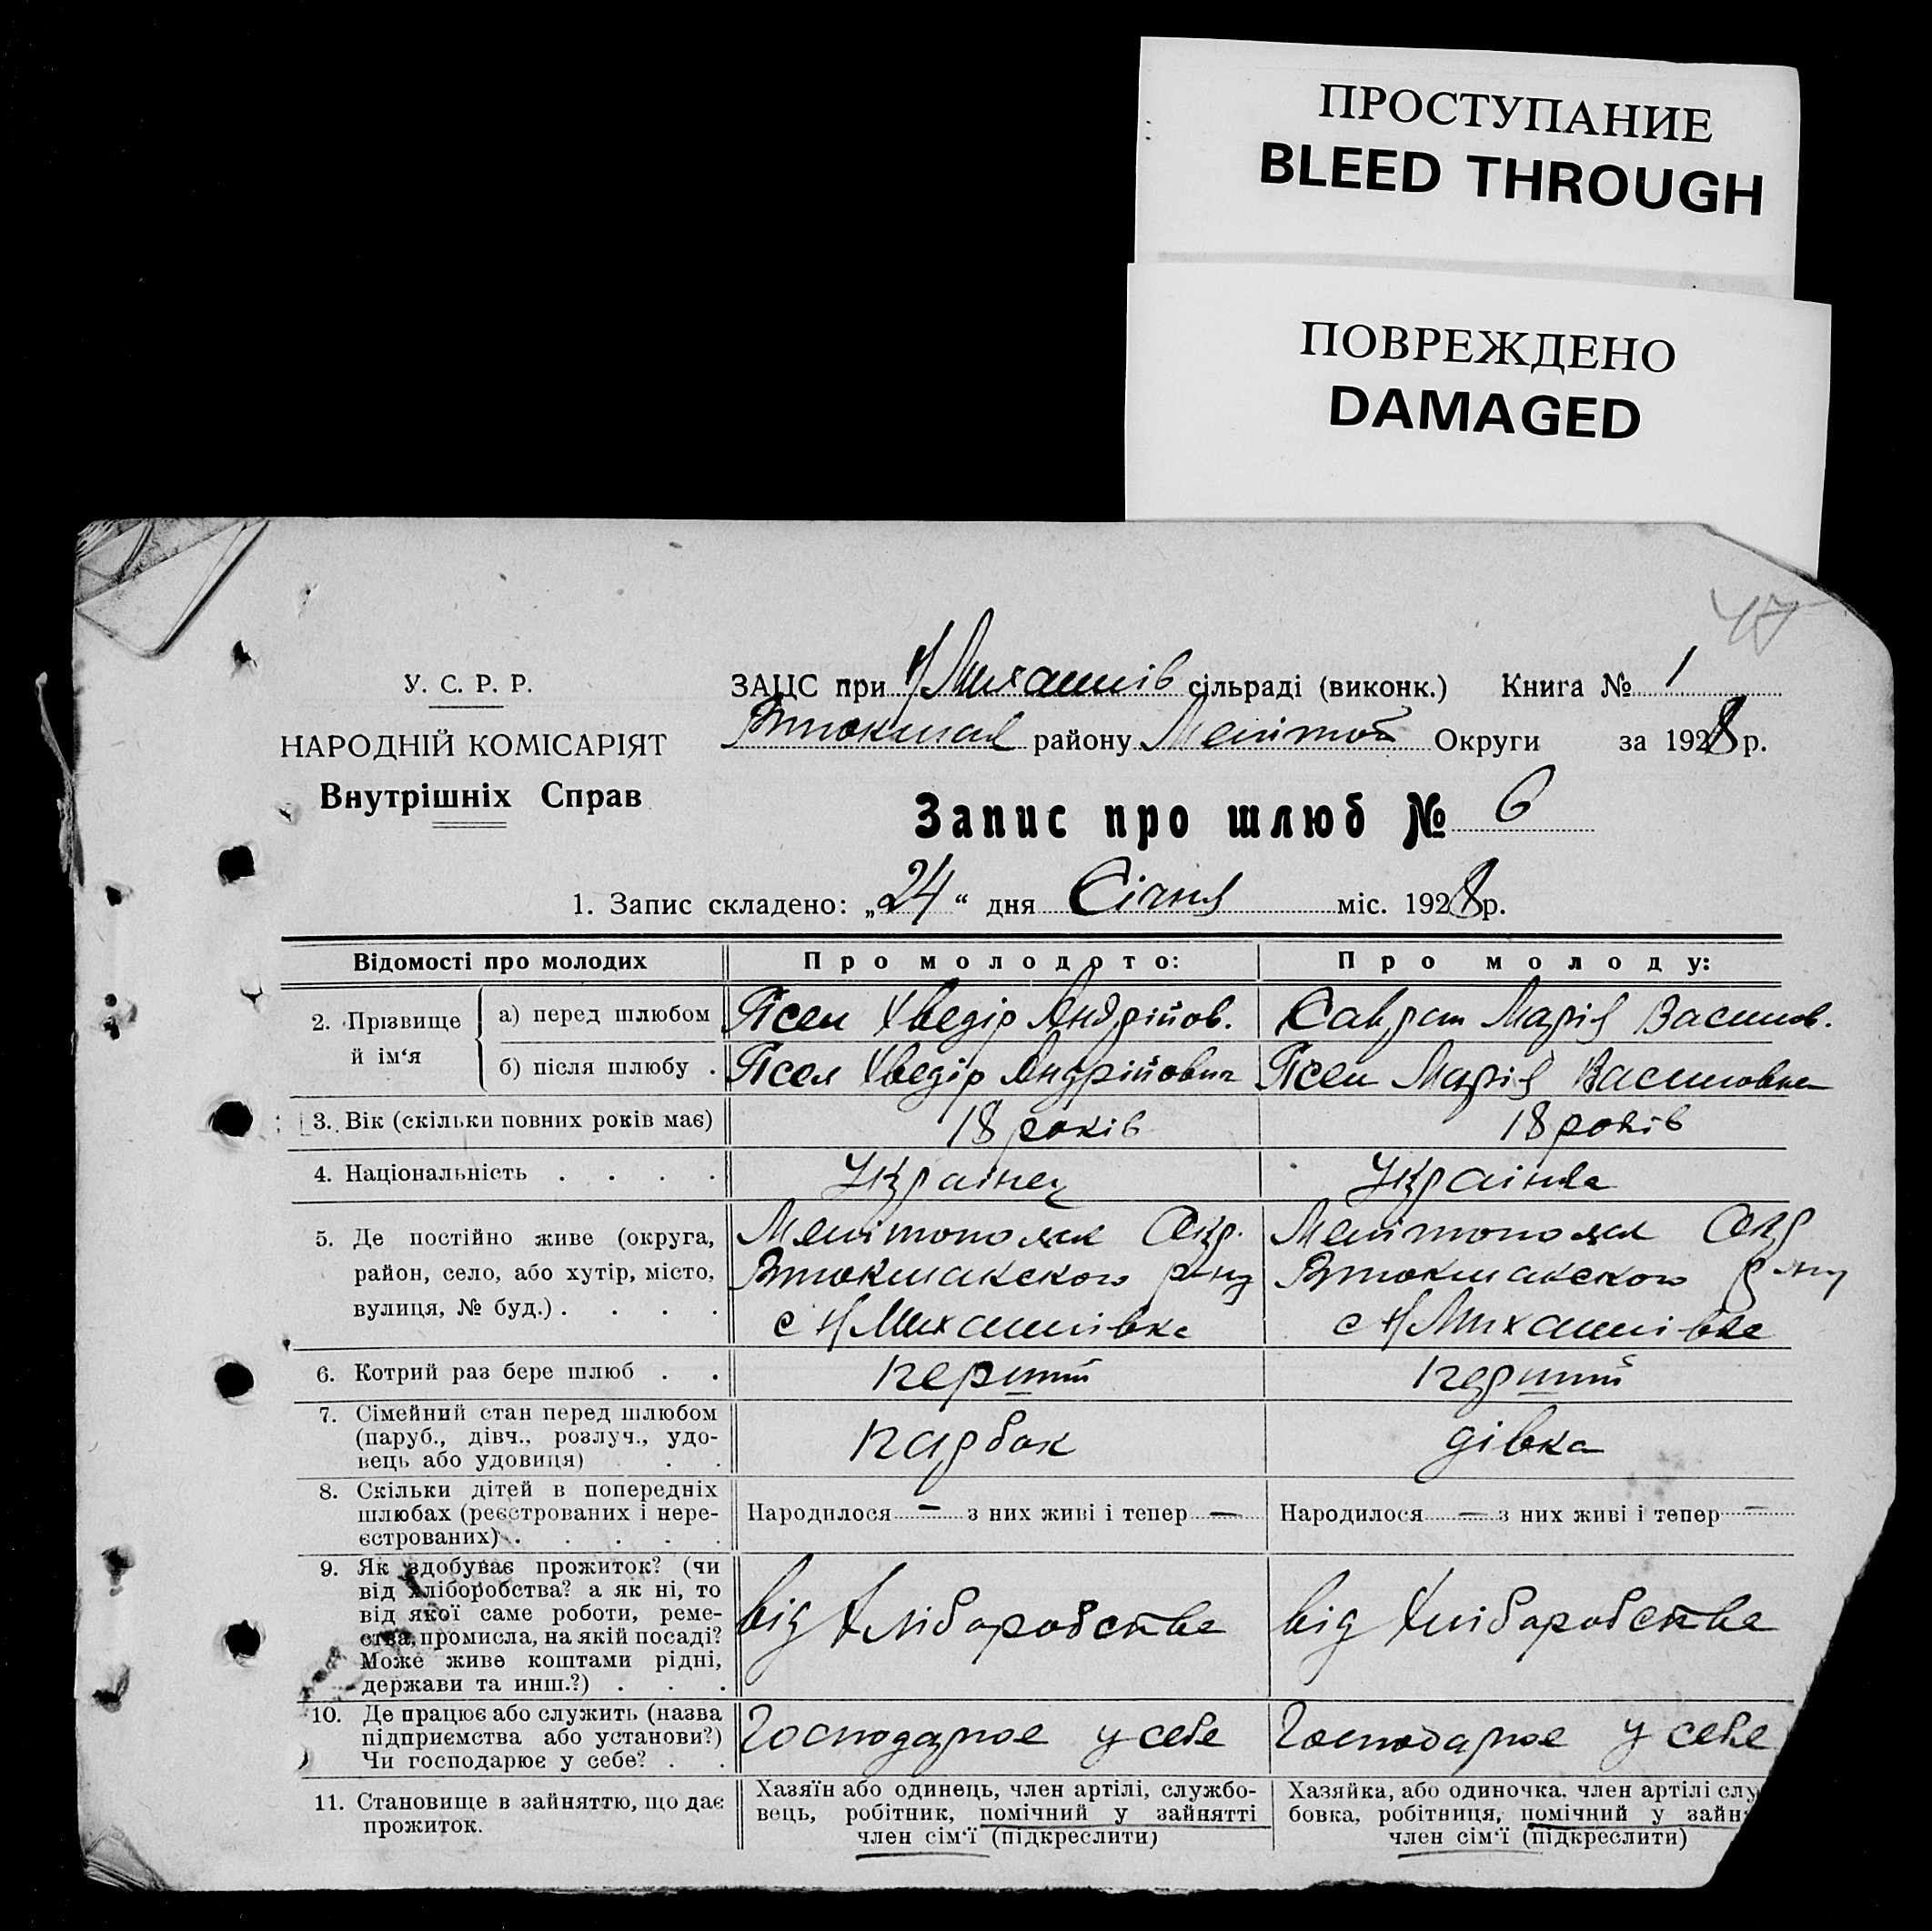 ПРОСТУПАНИЕ
BLEED THROUGH
ПОВРЕЖДЕНО
DAMAGED
47
У. С. Р. Р.
НАРОДНІЙ КОМІСАРІЯТ
Внутрішніх Справ
ЗАЦС при Н Михайлів сільраді (виконк.) Книга № 1
Втокмак району Меліт Округи за 1928 р.
Запис про шлюб № 6
1. Запис складено: „24“ дня Січня міс. 1928 р.
Відомості про молодих
Про молодого:
Про молоду:
2. Прізвище й ім‘я
а) перед шлюбом
Хведір Андрійов.
Марія Васильов.
б) після шлюбу .
Хведір Андрійович
Марія Василівна
3. Вік (скільки повних років має)
18 років
18 років
4. Національність . . . .
Українец
Українка
5. Де постійно живе (округа,
район, село, або хутір, місто,
вулиця, № буд.) . . . .
Мелітопольск Окр.
Втокмакского р-ну
с Н Михайлівка
Мелітопольск Окр
Втокмакского р-ну
с Н Михайлівка
6. Котрий раз бере шлюб . .
перший
перший
7. Сімейний стан перед шлюбом
(паруб., дівч., розлуч., удо-
вець або удовиця) . . .
парбок
дівка
8. Скільки дітей в попередніх
шлюбах (реєстрованих і нере-
єстрованих) . . . . .
Народилося — з них живі і тепер —
Народилося — з них живі і тепер —
9. Як здобуває прожиток? (чи
від хліборобства? а як ні, то
від якої саме роботи, реме-
ства, промисла, на якій посаді?
Може живе коштами рідні,
держави та инш.?) . . .
від Хліборобства
від Хліборобства
10. Де працює або служить (назва
підприємства або установи?)
Чи господарює у себе? . .
Господарює у себе
Господарює у себе
11. Становище в зайняттю, що дає
прожиток.
Хазяїн або одинець, член артілі, службо-
вець, робітник, помічний у зайнятті
член сім‘ї (підкреслити)
Хазяйка, або одиночка, член артілі слу
бовка, робітниця, помічний у зайн
член сім‘ї (підкреслити)